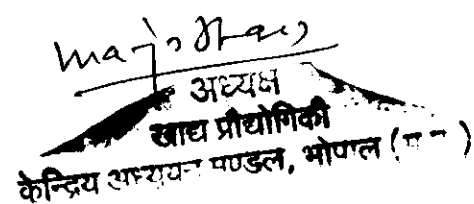 अध्यक्ष
खाद्य प्रौद्योगिकी
केन्द्रिय अध्ययन मण्डल, भोपाल